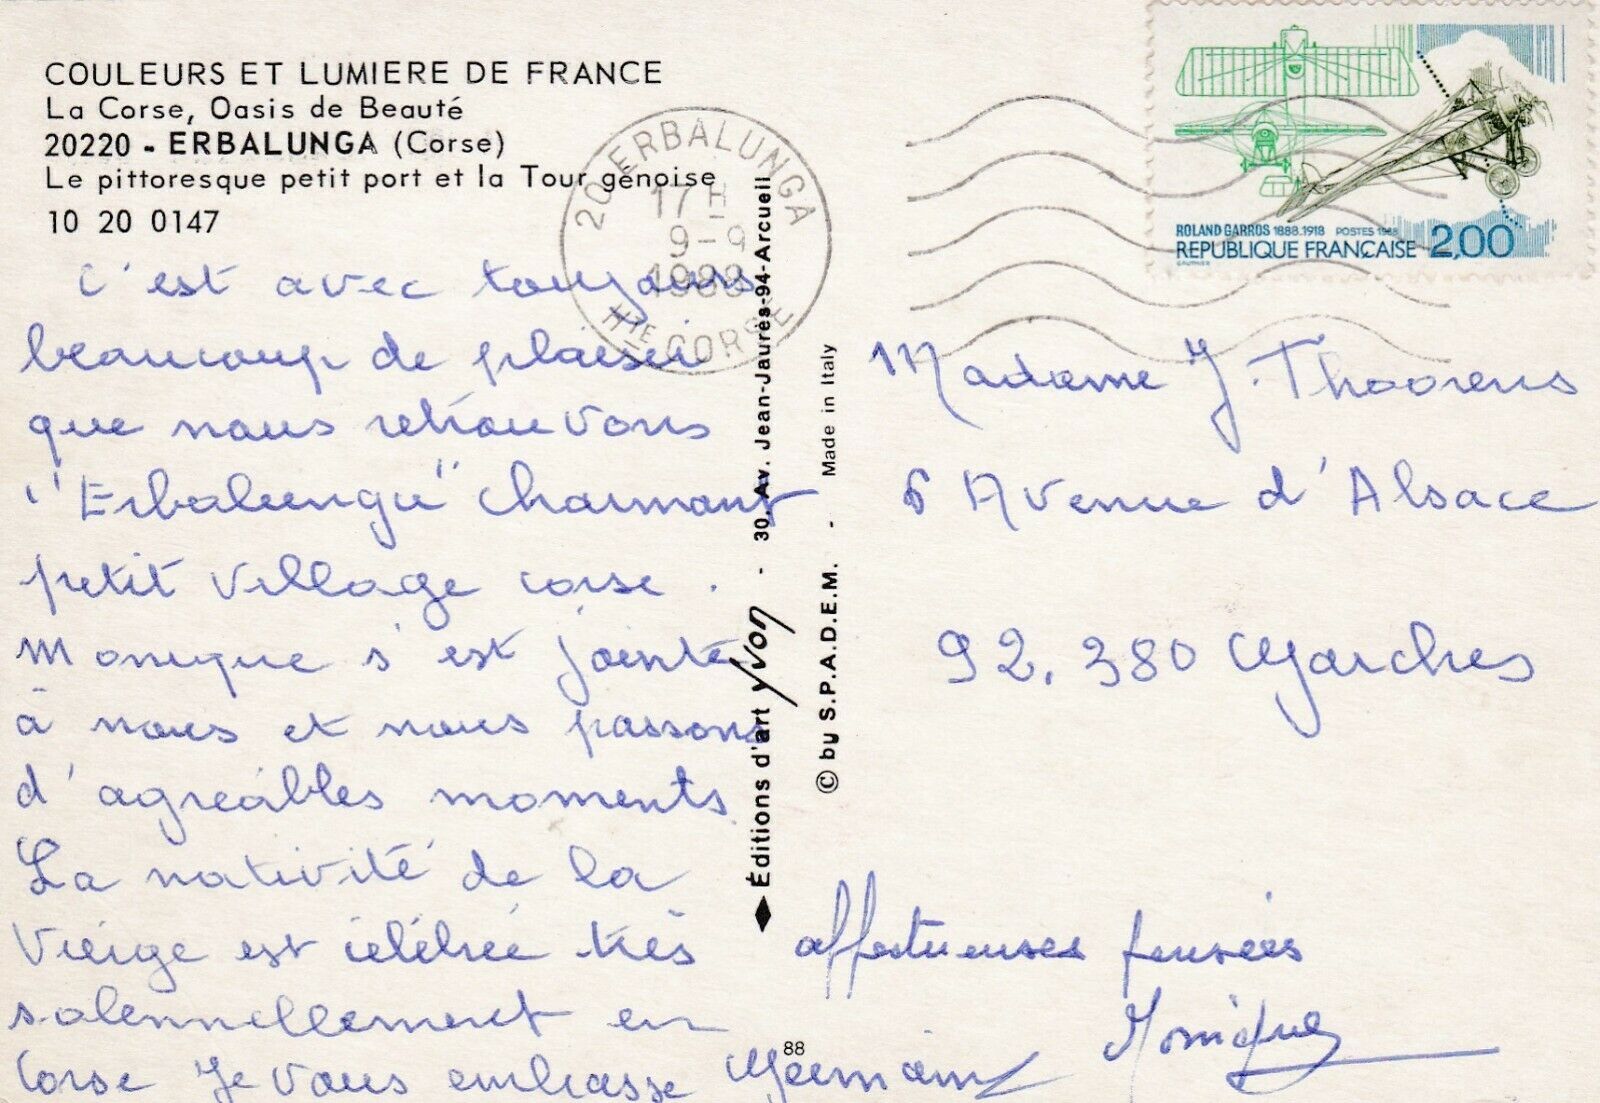 COULEURS ET LUMIERE DE FRANCE
La Corse, Oasis de Beauté
20220 - ERBALUNGA (Corse)
Le pittoresque petit port et la Tour génoise
10 20 0147
20 ERBALUNGA
17 H
9-9
1988
HTE CORSE
ROLAND GARROS 1888.1918 POSTES 1988
REPUBLIQUE FRANÇAISE 2,00
GAUTHIER
C'est avec toujours
beaucoup de plaisir
que nous retrouvons
"Erbalunga" charmant
petit village corse.
Monique s'est jointe
à nous et nous passons
d'agréables moments.
La nativité de la
Vierge est célébrée très
solennellement en
Corse Je vous embrasse
Madame J. Thoorens
6 Avenue d'Alsace
92.380 Garches
affectueuses pensées
Monique
Éditions d'art yvon - 30, Av. Jean-Jaurès-94-Arcueil
© by S.P.A.D.E.M. - Made in Italy
88